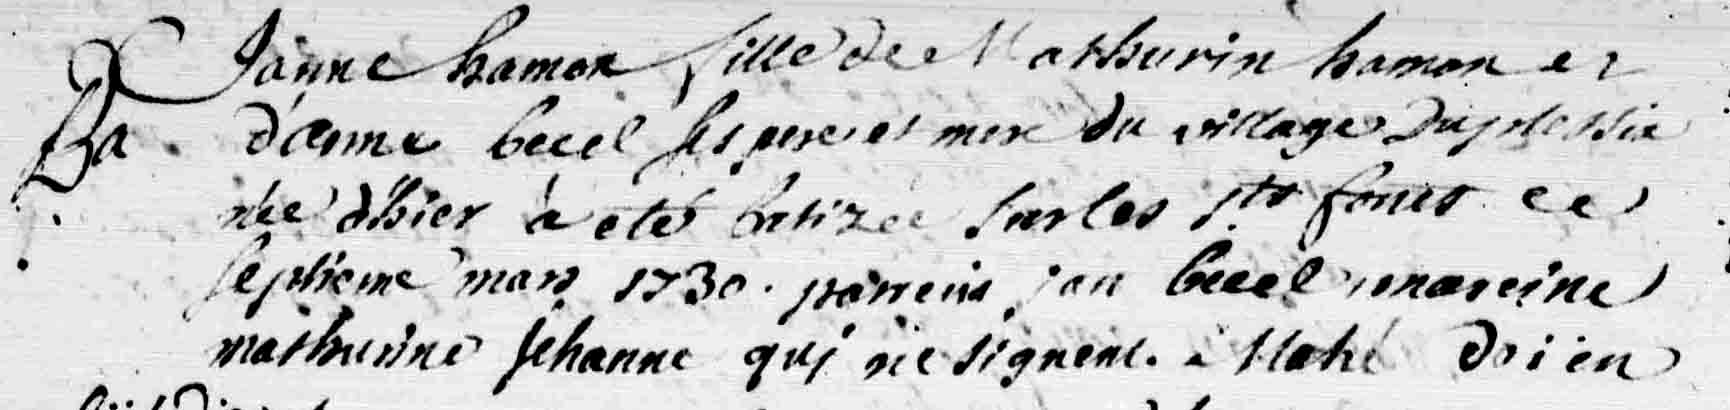 Janne hamon fille de Mathurin hamon et
Ba. d'anne becel ses pere et mere du village Duplessix
née d'hier a eté batizée sur les sts fonts ce
septieme mars 1730. parrein jan becel mareine
mathurine jehanne qui ne signent.